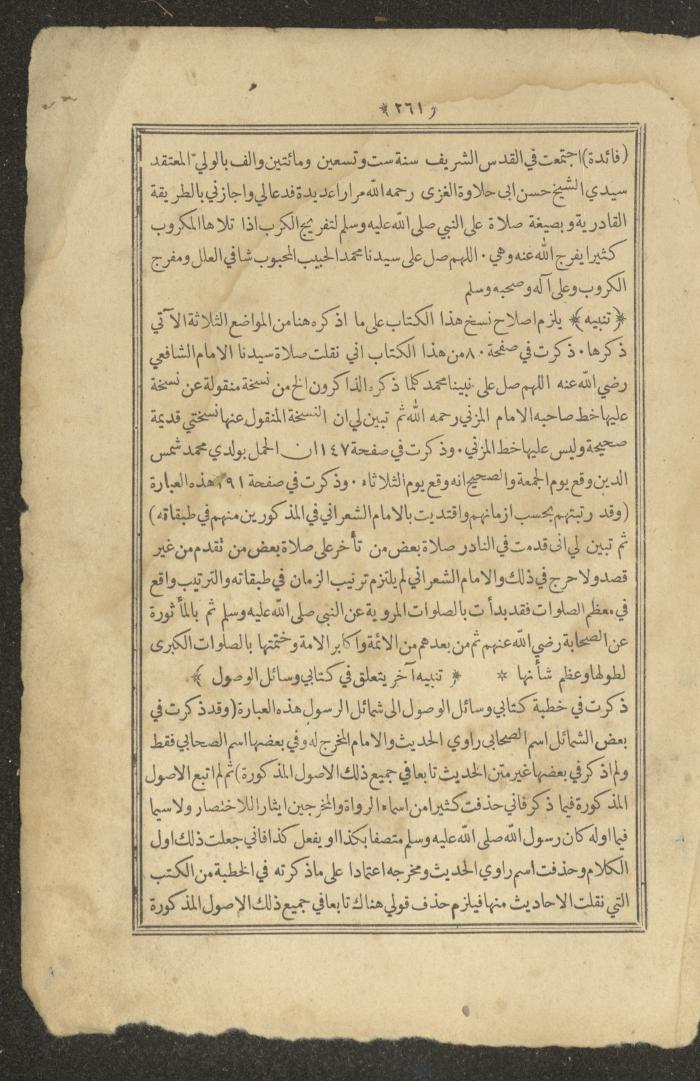 ﴿ ٢٦١ ﴾
(فائدة) اجتمعت في القدس الشريف سنة ست وتسعين ومائتين والف بالولي المعتقد
سيدي الشيخ حسن ابى حلاوة الغزى رحمه الله مرارا عديدة فدعالي واجازني بالطريقة
القادرية وبصيغة صلاة على النبي صلى الله عليه وسلم لتفريج الكرب اذا تلاها المكروب
كثيرا يفرج الله عنه وهي ٠ اللهم صل على سيدنا محمد الحبيب المحبوب شافي العلل ومفرج
الكروب وعلى آله وصحبه وسلم
﴿ تنبيه ﴾ يلزم اصلاح نسخ هذا الكتاب على ما اذكره هنا من المواضع الثلاثة الآتي
ذكرها ٠ ذكرت في صفحة ٨٠ من هذا الكتاب اني نقلت صلاة سيدنا الامام الشافعي
رضي الله عنه اللهم صل على نبينا محمد كلما ذكره الذاكرون الخ من نسخة منقولة عن نسخة
عليها خط صاحبه الامام المزني رحمه الله ثم تبين لي ان النسخة المنقول عنها نسختي قديمة
صحيحة وليس عليها خط المزني ٠ وذكرت في صفحة ١٤٧ ان الحمل بولدي محمد شمس
الدين وقع يوم الجمعة والصحيح انه وقع يوم الثلاثاء ٠ وذكرت في صفحة ٩١ هذه العبارة
(وقد رتبتهم بحسب ازمانهم واقتديت بالامام الشعراني في المذكورين منهم في طبقاته)
ثم تبين لي انى قدمت في النادر صلاة بعض من تأخر على صلاة بعض من تقدم من غير
قصد ولا حرج في ذلك والامام الشعراني لم يلتزم ترتيب الزمان في طبقاته والترتيب واقع
في معظم الصلوات فقد بدأت بالصلوات المروية عن النبي صلى الله عليه وسلم ثم بالمأثورة
عن الصحابة رضي الله عنهم ثم من بعدهم من الائمة واكابر الامة وختمتها بالصلوات الكبرى
لطولها وعظم شأنها * ﴿ تنبيه آخر يتعلق في كتابي وسائل الوصول ﴾
ذكرت في خطبة كتابي وسائل الوصول الى شمائل الرسول هذه العبارة (وقد ذكرت في
بعض الشمائل اسم الصحابى راوي الحديث والامام المخرج له وفي بعضها اسم الصحابي فقط
ولم اذكر في بعضها غير متن الحديث تابعا في جميع ذلك الاصول المذكورة) ثم لم اتبع الاصول
المذكورة فيما ذكر فاني حذفت كثيرا من اسماء الرواة والمخرجين ايثارا للاختصار ولا سيما
فيما اوله كان رسول الله صلى الله عليه وسلم متصفا بكذا او يفعل كذا فاني جعلت ذلك اول
الكلام وحذفت اسم راوي الحديث ومخرجه اعتمادا على ما ذكرته في الخطبة من الكتب
التي نقلت الاحاديث منها فيلزم حذف قولي هناك تابعا في جميع ذلك الاصول المذكورة